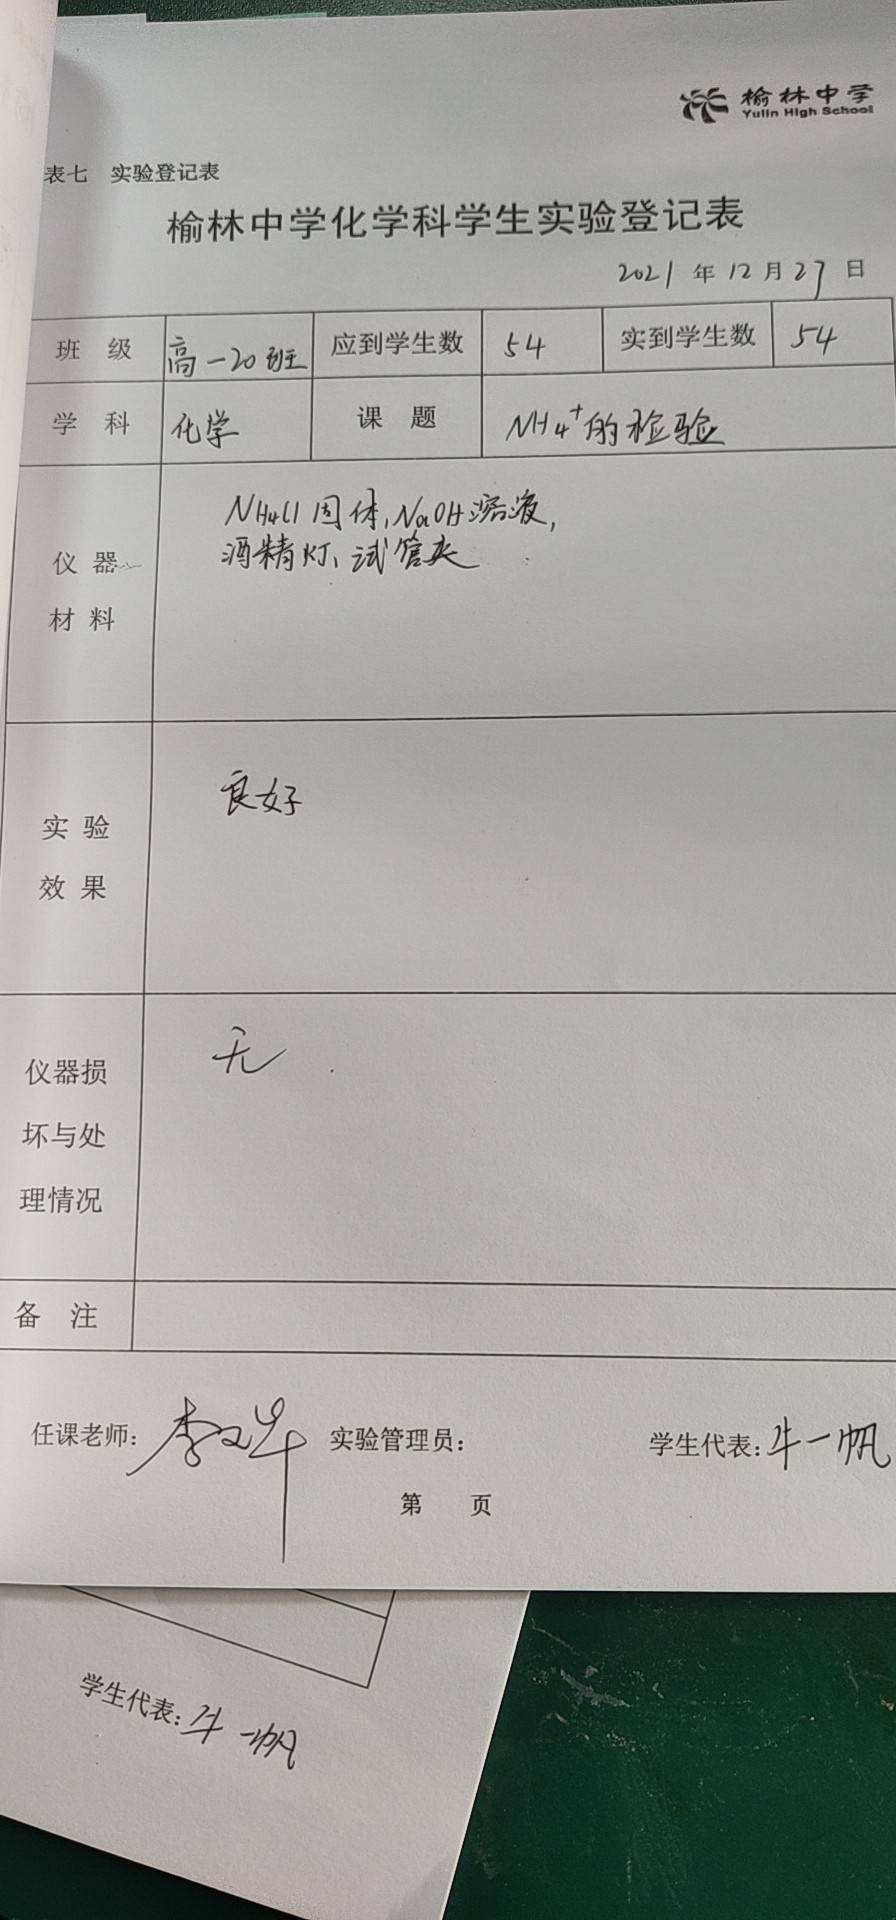 榆林中学
Yulin High School
表七 实验登记表
榆林中学化学科学生实验登记表
2021 年 12 月 27 日
班 级 高一20班 应到学生数 54 实到学生数 54
学 科 化学 课 题 NH₄⁺的检验
仪 器
材 料
NH₄Cl 固体, NaOH溶液,
酒精灯、试管夹
实 验
效 果
良好
仪器损
坏与处
理情况
无
备 注
任课老师: 李 实验管理员: 学生代表: 牛一帆
第 页
学生代表: 牛一帆